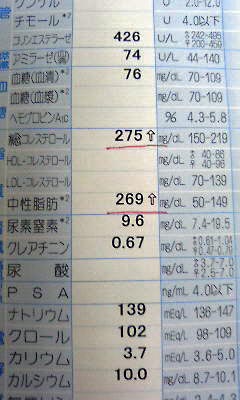 チモール*² 4.0以下
コリンエステラーゼ 426 U/L
アミラーゼ 74 U/L 44-140
血糖(血清)*² 76 mg/dL 70-109
血糖(血漿)*² mg/dL 70-109
ヘモグロビンA1C % 4.3-5.8
総コレステロール 275⇧ mg/dL 150-219
HDL-コレステロール mg/dL
LDL-コレステロール mg/dL 70-139
中性脂肪*² 269⇧ mg/dL 50-149
尿素窒素*² 9.6 mg/dL 7.4-19.5
クレアチニン 0.67 mg/dL
尿酸 mg/dL
PSA ng/mL 4.0以下
ナトリウム 139 mEq/L 136-147
クロール 102 mEq/L 98-109
カリウム 3.7 mEq/L 3.6-5.0
カルシウム 10.0 mg/dL 8.7-10.1